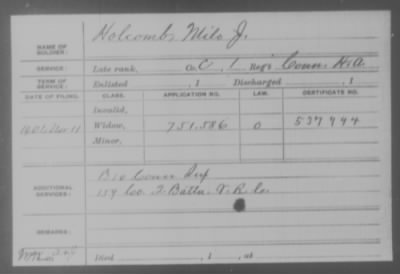 NAME OF SOLDIER: Holcomb, Milo J.
SERVICE: Late rank, Co. C, 1 Reg't Conn. H. A.
TERM OF SERVICE: Enlisted , 1 Discharged , 1
DATE OF FILING. CLASS. APPLICATION NO. LAW. CERTIFICATE NO.
Invalid,
Widow, 751.586 537994
Minor,
ADDITIONAL SERVICES: Conn Inf
159 Co. 2. Battn. V. R. C.
REMARKS:
Died , 1 , at